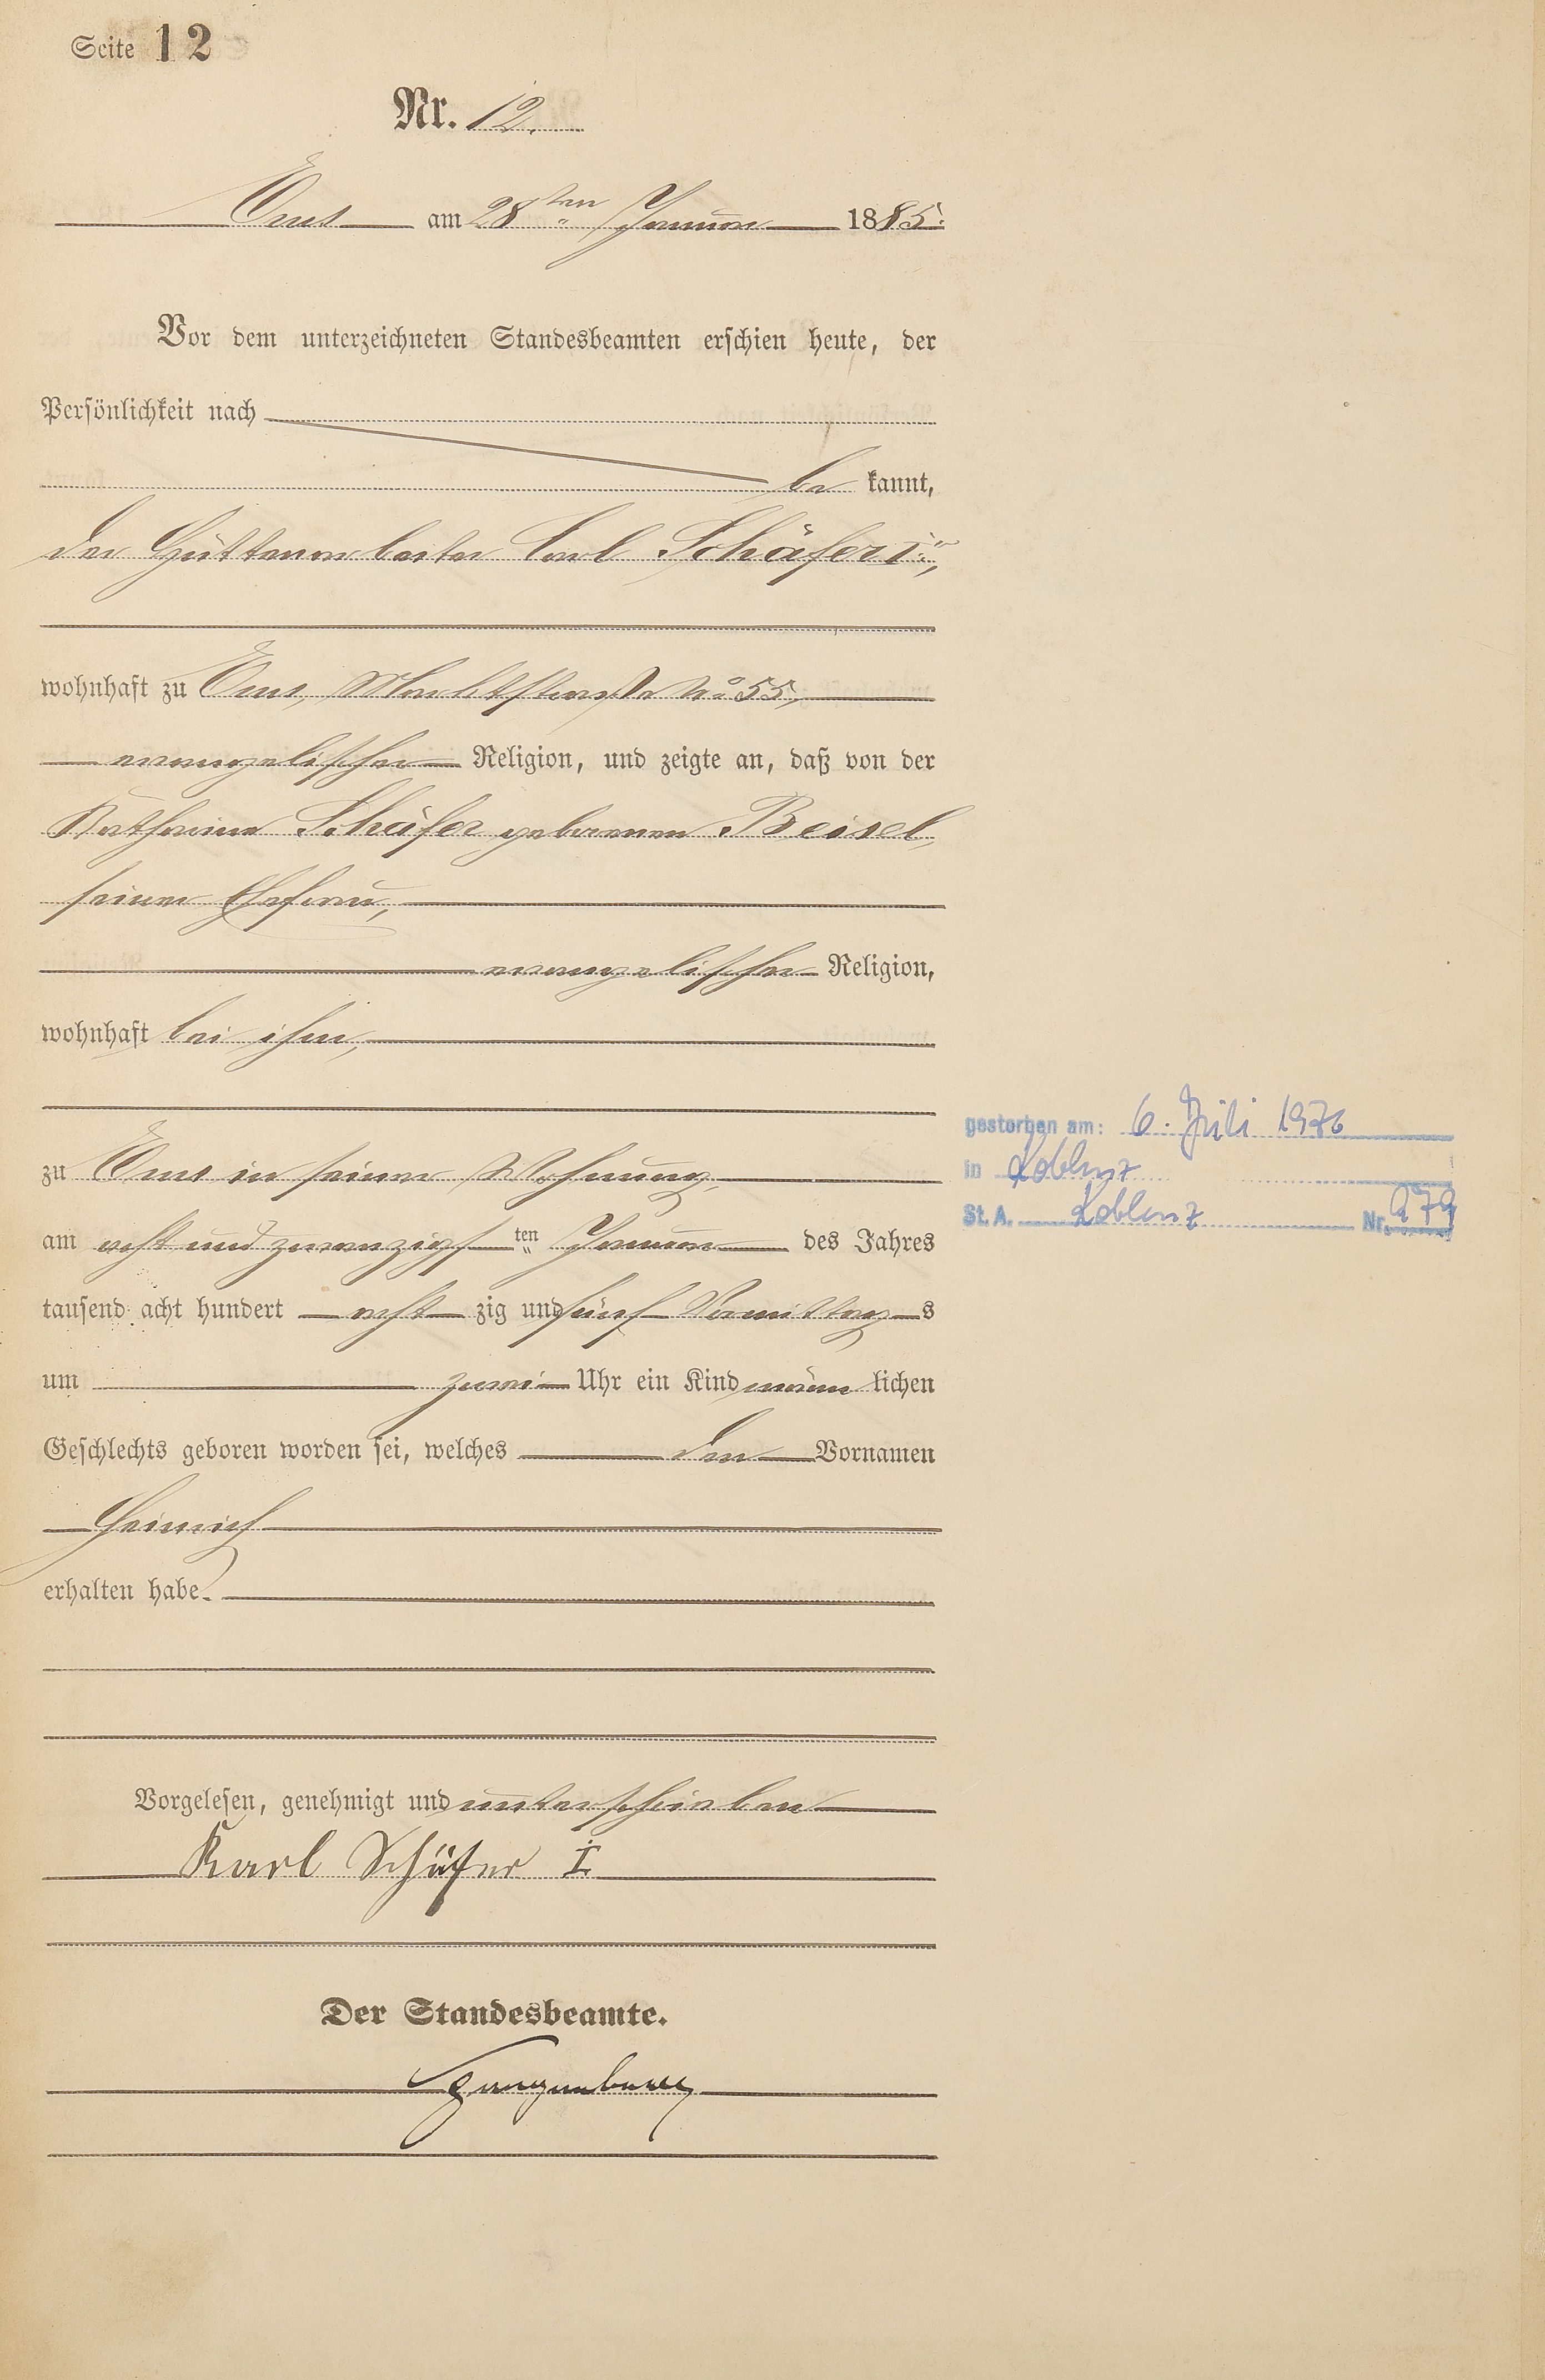 Seite 12
Nr. 12.
Ems am 28ten Januar 1885.
Vor dem unterzeichneten Standesbeamten erschien heute, der
Persönlichkeit nach
be kannt,
der Hüttenarbeiter Carl Schäfer I.,
wohnhaft zu Ems, Marktstraße No 55,
evangelischer Religion, und zeigte an, daß von der
Katharina Schäfer geborenen Beisel,
seiner Ehefrau,
evangelischer Religion,
wohnhaft bei ihm,
zu Ems in seiner Wohnung,
am acht und zwanzigsten Januar des Jahres
tausend acht hundert acht zig und fünf Vormittags
um zwei Uhr ein Kind männlichen
Geschlechts geboren worden sei, welches den Vornamen
Heinrich
erhalten habe.
Vorgelesen, genehmigt und unterschrieben
Karl Schäfer I.
Der Standesbeamte.
gestorben am: 6. Juli 1976
in Koblenz
St. A. Koblenz Nr. 979